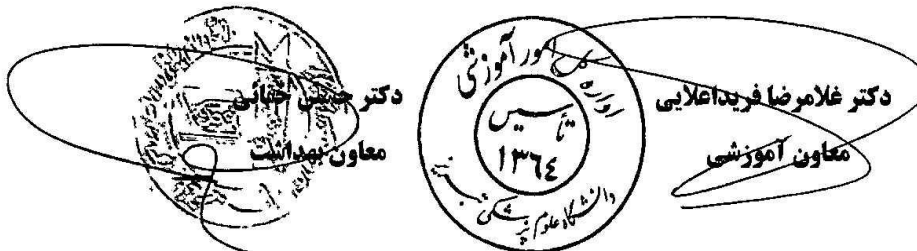 دکتر غلامرضا فریداعلایی
معاون آموزشی
اداره کل امور آموزشی
تأسیس
۱۳۶۴
دانشگاه علوم پزشکی تبریز
دکتر
معاون بهداشت